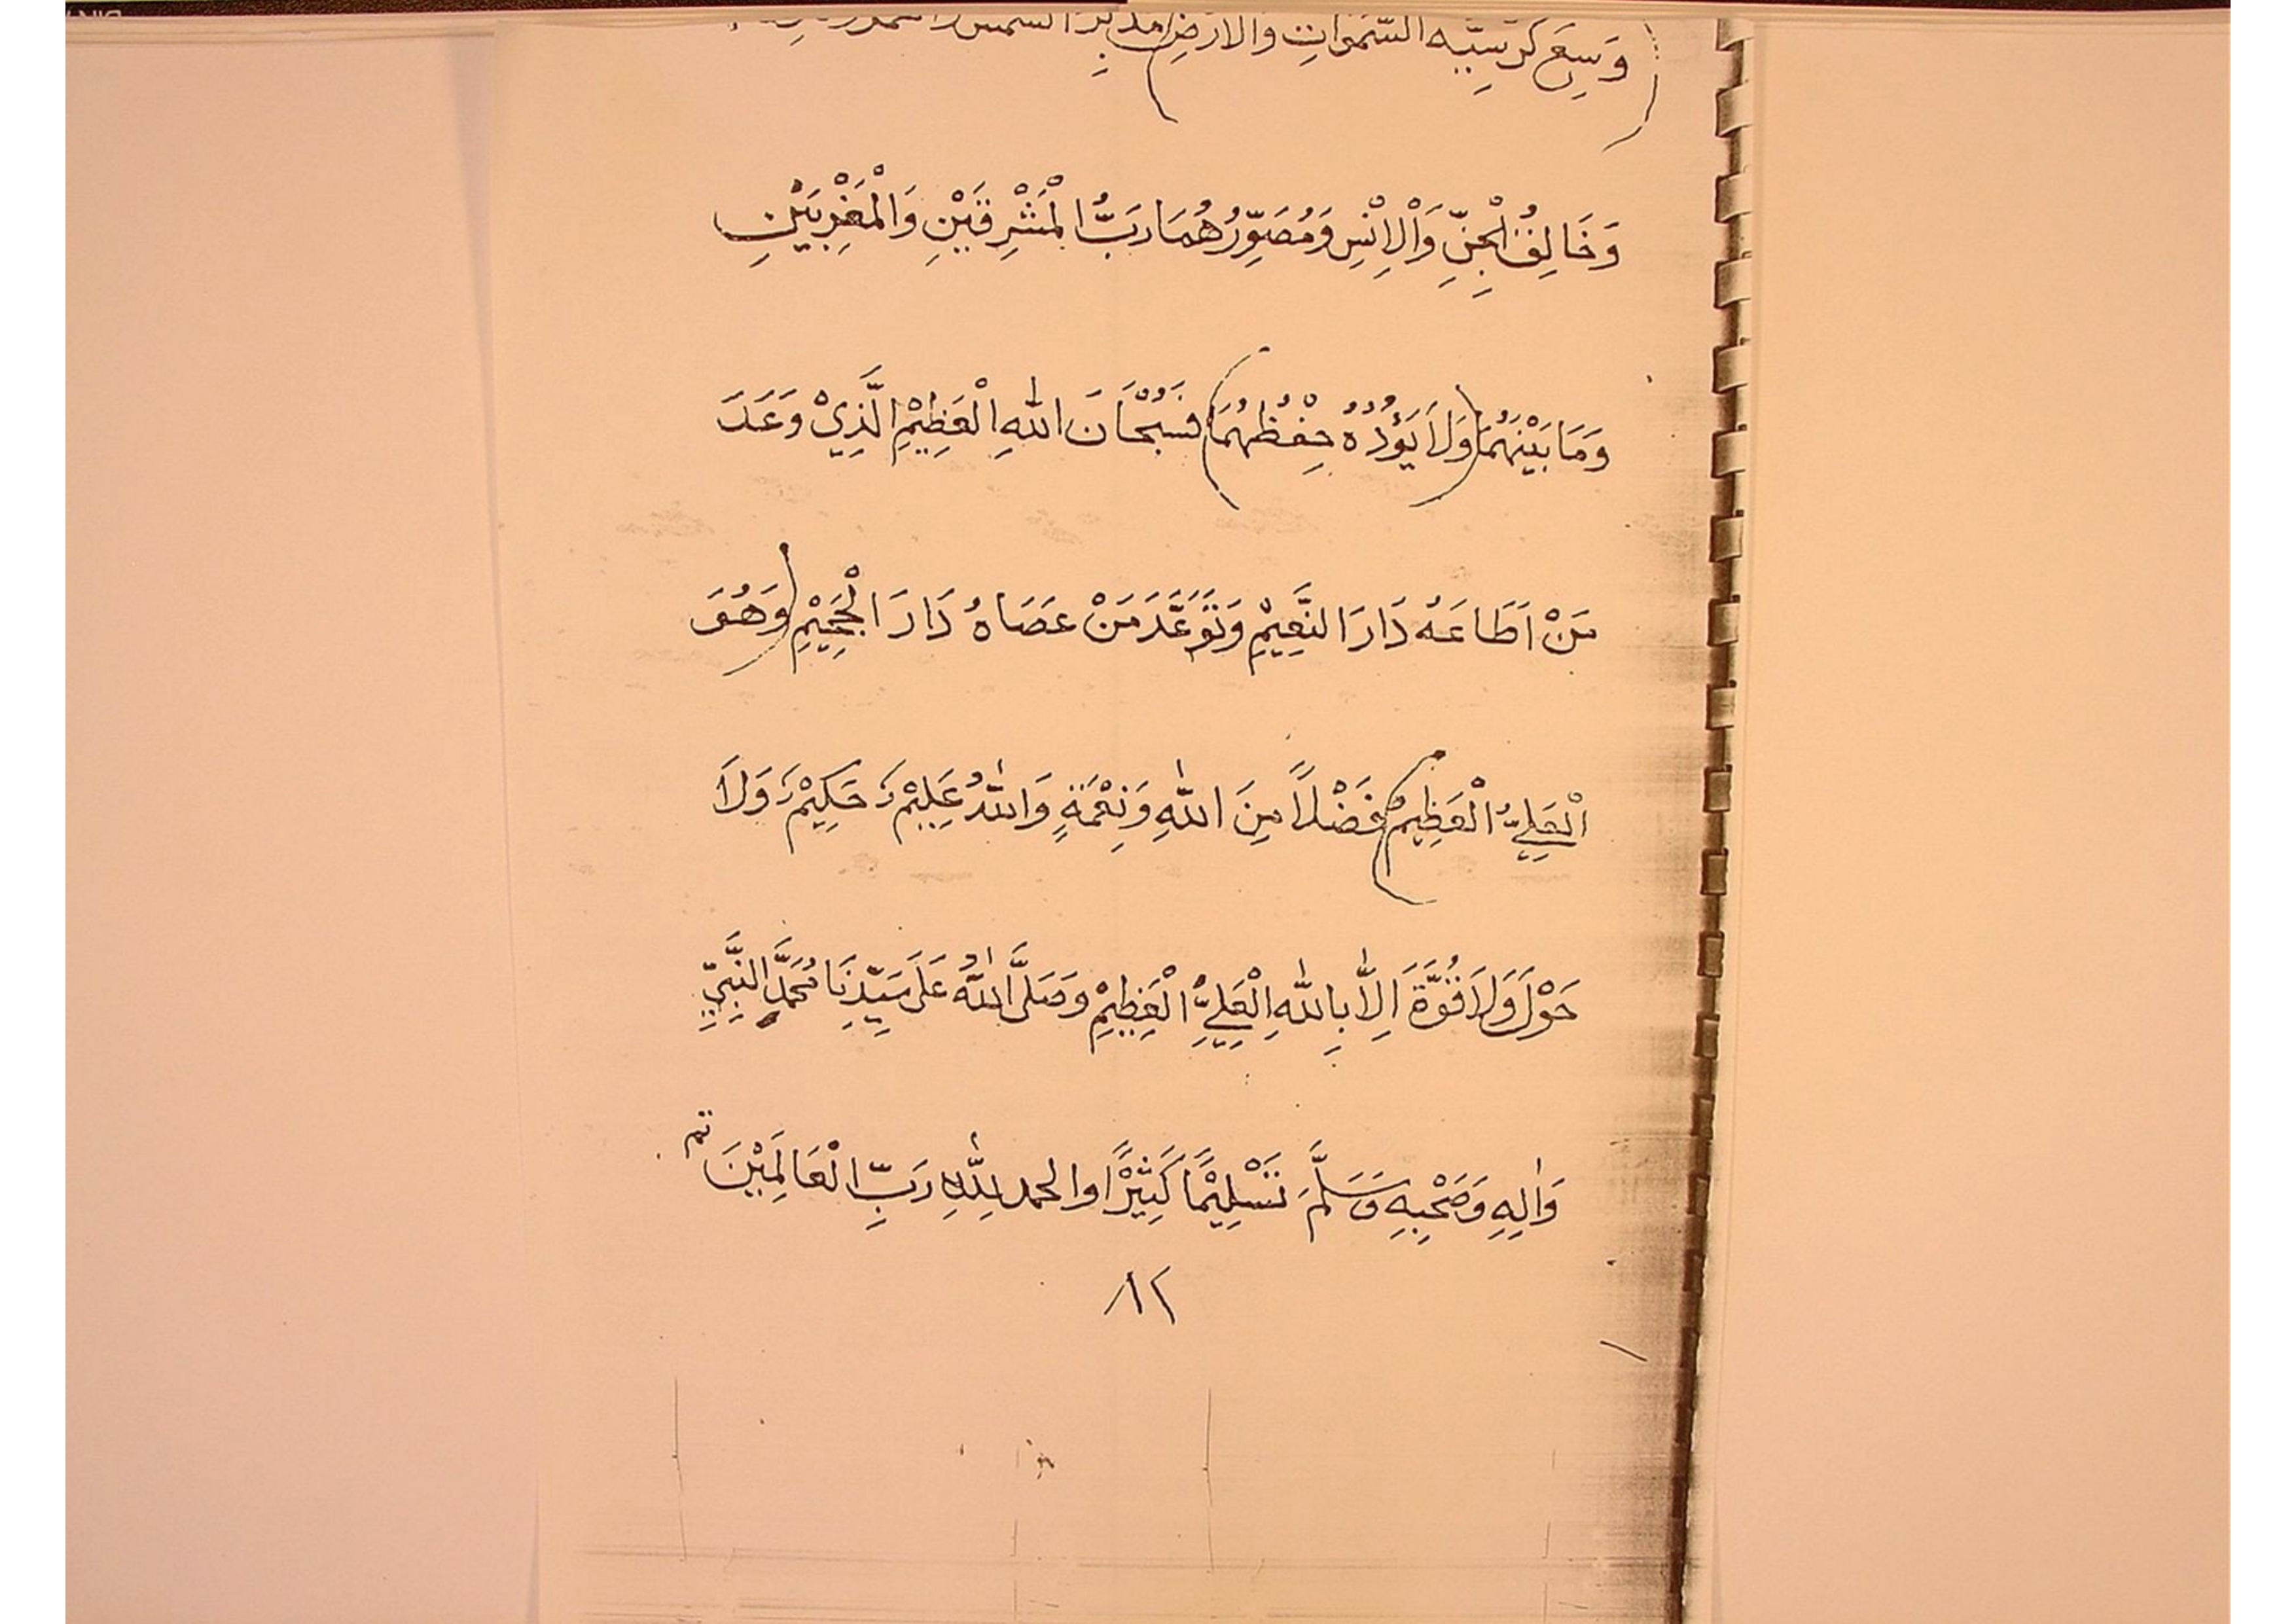 (وَسِعَ كُرْسِيُّه السَّمٰوَاتِ وَالْاَرْضِ) مُدَبِّرُ الشَّمْسِ
وَخَالِقُ الْجِنِّ وَالْاِنْسِ وَمُصَوِّرُهُمَا رَبُّ الْمَشْرِقَيْنِ وَالْمَغْرِبَيْنِ
وَمَا بَيْنَهُمَا (وَلَا يَؤُدُهُ حِفْظُهُمَا) فَسُبْحَانَ اللهِ الْعَظِيْمِ الَّذِيْ وَعَدَ
مَنْ اَطَاعَهُ دَارَ النَّعِيْمِ وَتَوَعَّدَ مَنْ عَصَاهُ دَارَ الْجَحِيْمِ (وَهُوَ
الْعَلِيُّ الْعَظِيْمُ) فَضْلًا مِنَ اللهِ وَنِعْمَةٍ وَاللهُ عَلِيْمٌ حَكِيْمٌ وَلَا
حَوْلَ وَلَا قُوَّةَ اِلَّا بِاللهِ الْعَلِيِّ الْعَظِيْمِ وَصَلَّى اللهُ عَلَى سَيِّدِنَا مُحَمَّدٍ النَّبِيِّ
وَاٰلِهِ وَصَحْبِهِ وَسَلَّمَ تَسْلِيْمًا كَثِيْرًا والحمد لِلّٰهِ رَبِّ الْعَالَمِيْنَ تم
٨٢